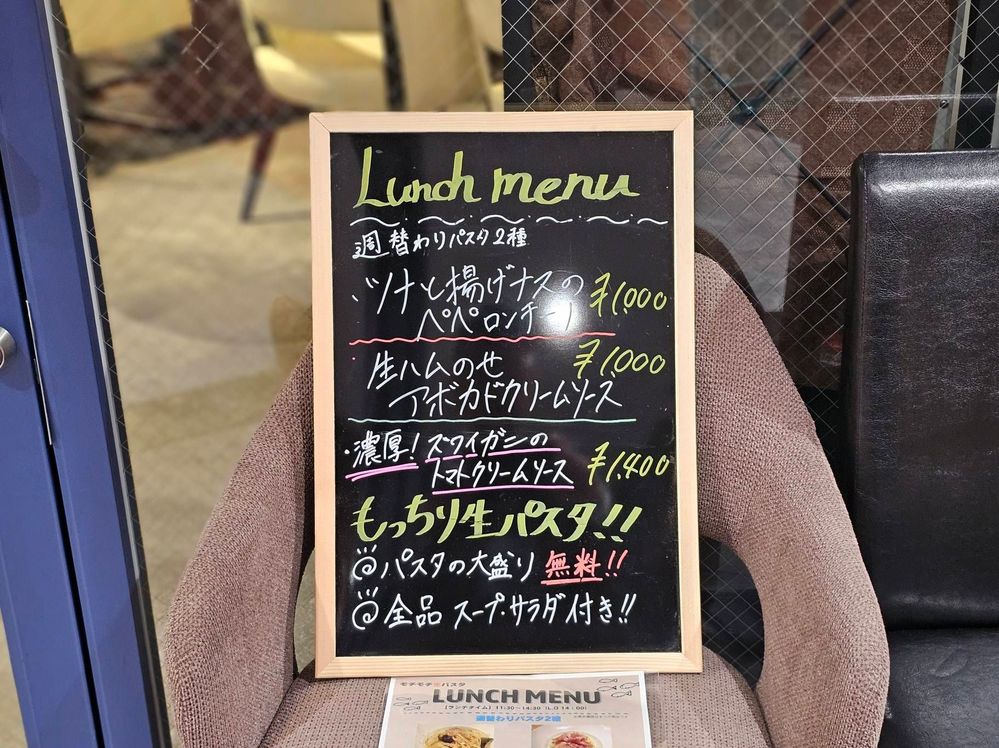 Lunch menu
週替わりパスタ2種
・ツナと揚げナスの ¥1,000
ペペロンチーノ
・生ハムのせ ¥1,000
アボカドクリームソース
・濃厚!ズワイガニの
トマトクリームソース ¥1,400
もっちり生パスタ!!
パスタの大盛り 無料!!
全品 スープ・サラダ付き!!
モチモチ生パスタ
LUNCH MENU
[ランチタイム] 11:30~14:30 (L.O 14:00)
週替わりパスタ2種